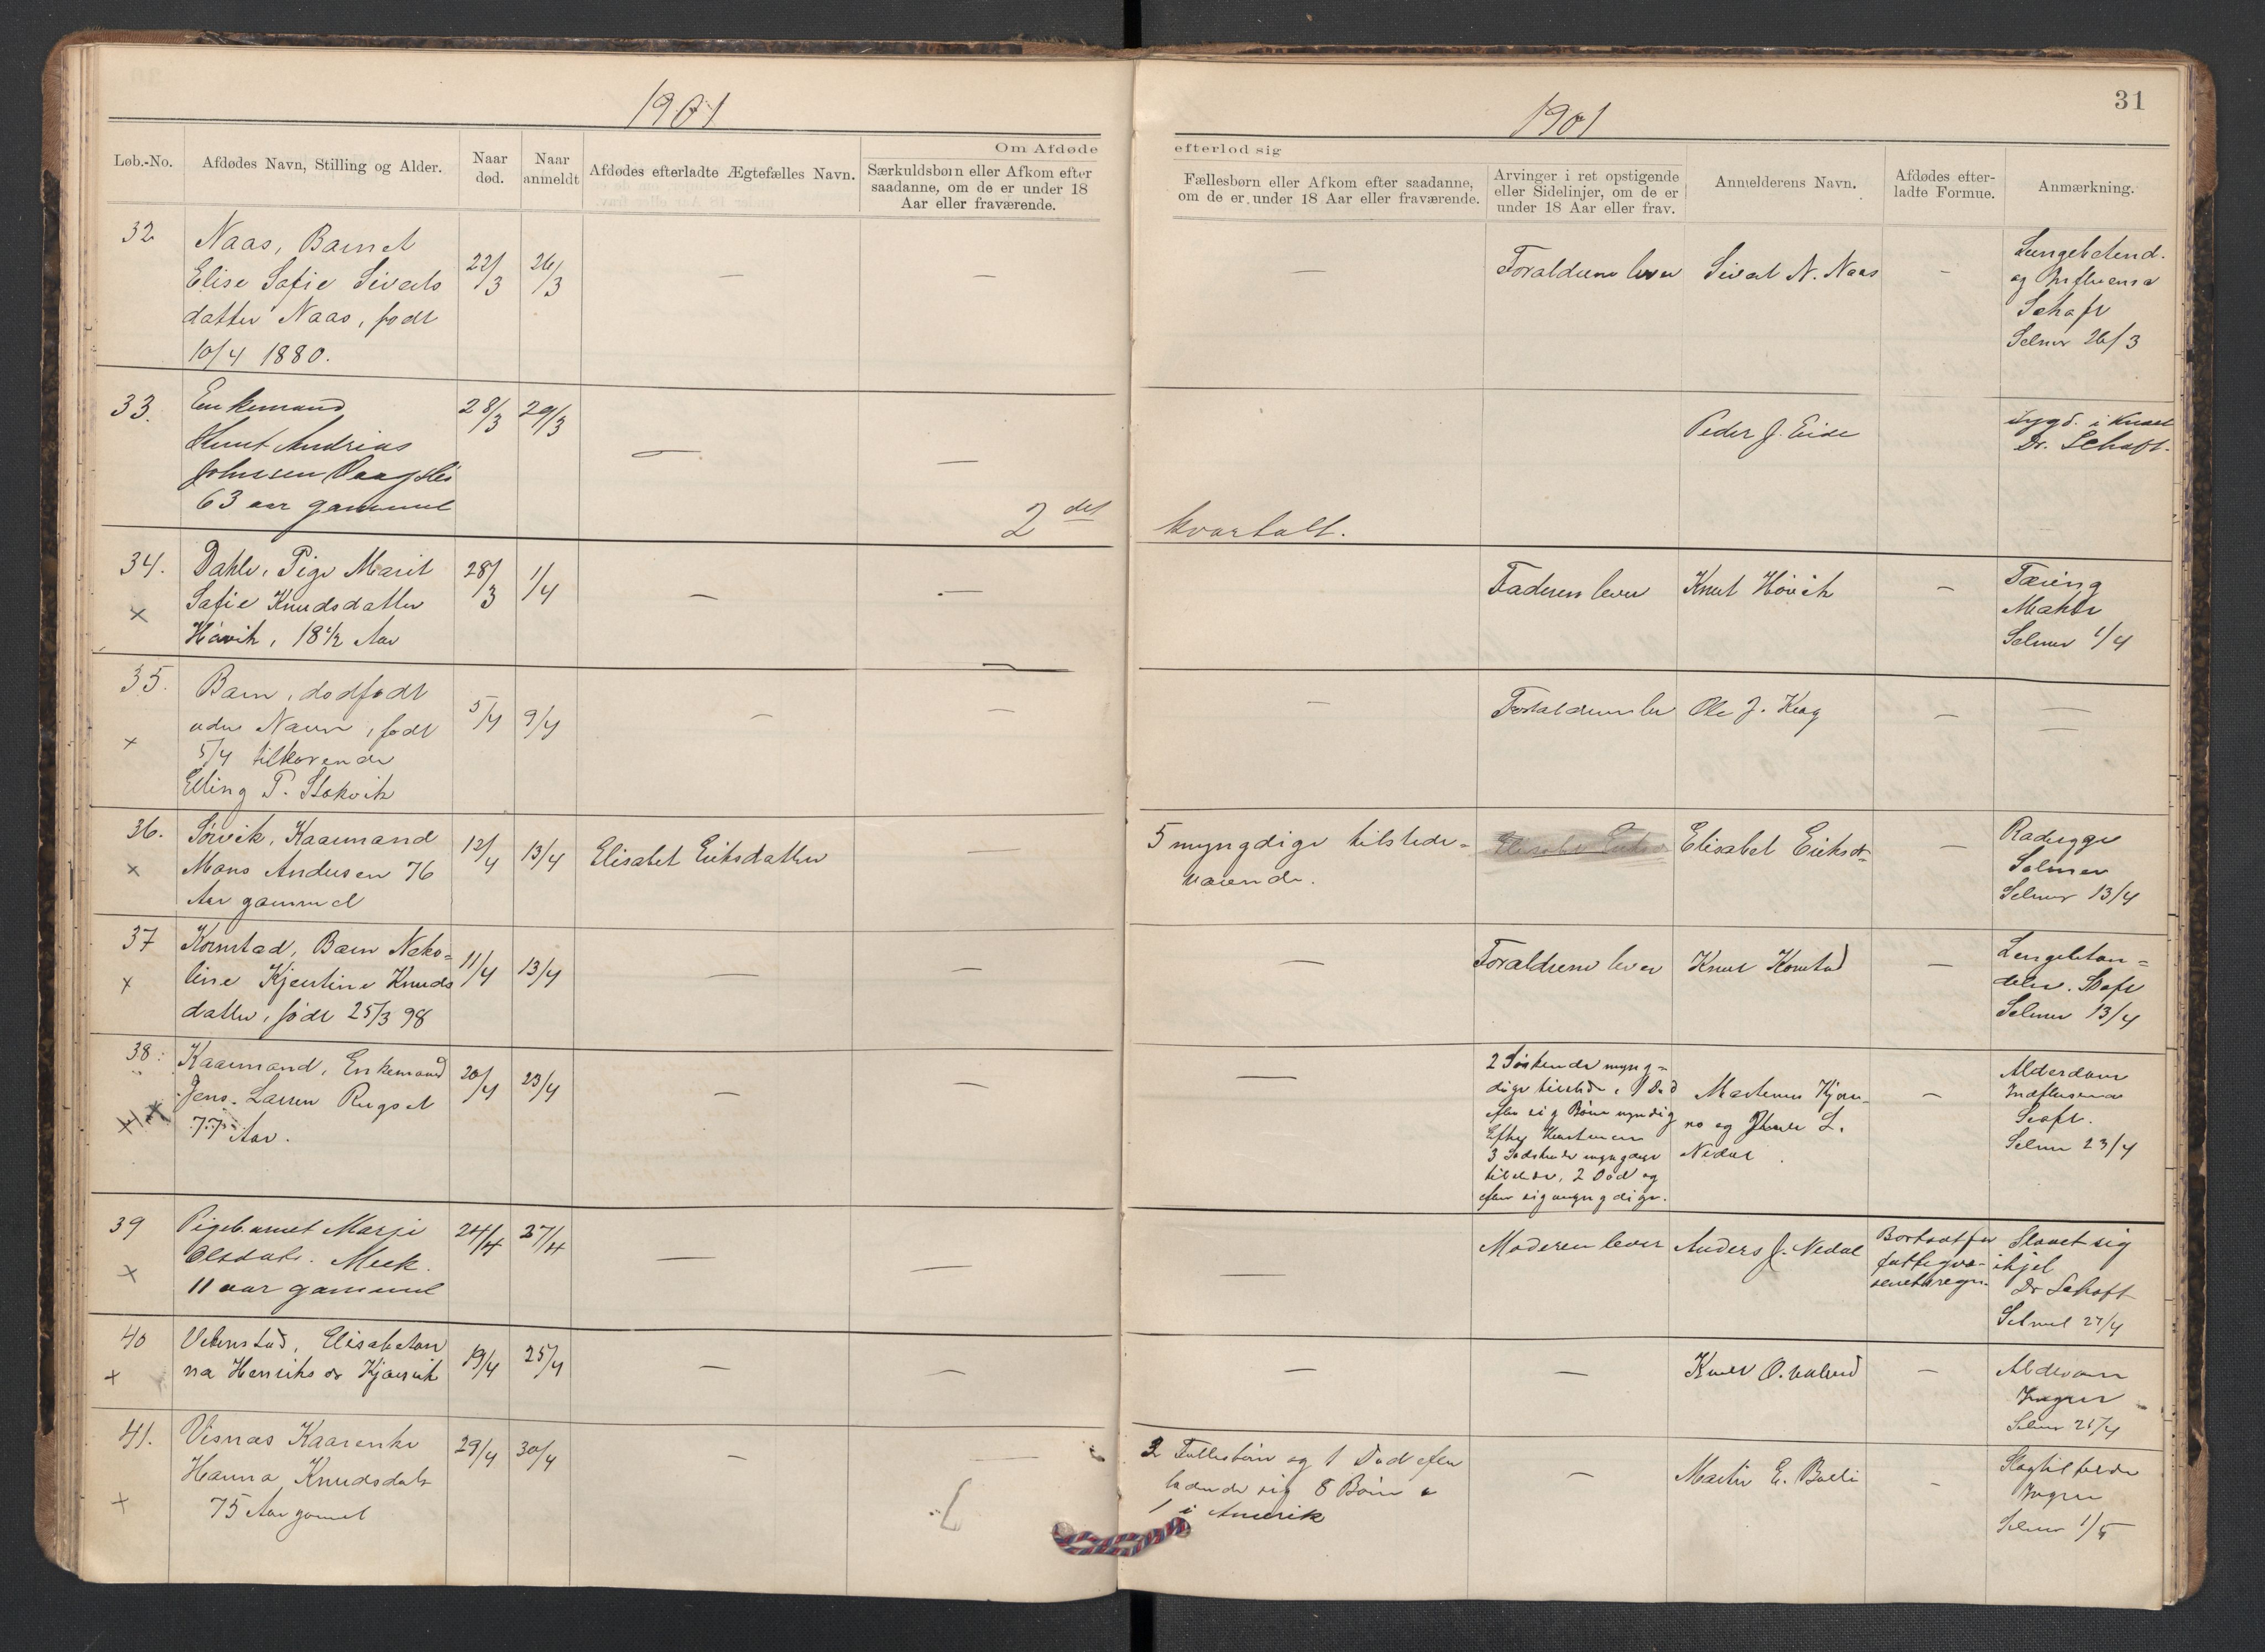 1901
1901
31
Om Afdøde
efterlod sig
Løb.-No.
Afdødes Navn, Stilling og Alder.
Naar død.
Naar anmeldt
Afdødes efterladte Ægtefælles Navn.
Særkuldsbørn eller Afkom efter
saadanne, om de er under 18
Aar eller fraværende.
Fællesbørn eller Afkom efter saadanne,
om de er under 18 Aar eller fraværende.
Arvinger i ret opstigende
eller Sidelinjer, om de er
under 18 Aar eller frav.
Anmelderens Navn.
Afdødes efter-
ladte Formue.
Anmærkning.
32
Naas, Barnet
Elise Sofie Siverts
datter Naas, født
10/4 1880.
22/3
26/3
—
—
—
Foraldrene lever
Sivert N. Naas
—
og Influensa
Schaft
Selmer 26/3
33.
Enkemand
Knut Andreas
Johnsen
63 aar gammel
28/3
29/3
—
—
Peder J. Eide
Sygd. i Knæet
Dr. Schaft.
2 det
kvartalt.
34.
×
Dahle, Pige Marit
Sofie Knudsdatter
Høvik, 18 1/2 Aar
28/3
1/4
—
—
Faderen lever
Knut Høvik
—
Tæring
Selmer 1/4
35.
×
Barn, dødfødt
uden Navn, født
5/4 tilhørende
Elling P. Stokvik
5/4
9/4
—
—
—
Ole J.
—
—
36.
×
Sørvik, Kaarmand
Mons Andersen 76
Aar gammel
12/4
13/4
Elisabet Eriksdatter
—
5 myngdige tilstede=
værende.
Elisabet Eriksd=
—
Selmer 13/4
37
×
Kornstad, Barn
line Kjerstine Knuds
datter, født 25/3 98
11/4
13/4
—
—
—
Foraldrene lever
Knut Kornstad
—
Selmer 13/4
38.
Kaarmand, Enkemand
Jens Larsen Rugset
77 Aar.
20/4
23/4
—
—
—
2 Søskende myng=
dige tilstede, 1 Død
efter sig Børn myndig
3 Sødskende myngdige
tilstede, 2 Død og
efter sig
no og L.
Nedal
—
Alderdom
Selmer 23/4
39
×
Pigebarnet Marje
Olsdatr. Meek.
11 aar gammel
24/4
27/4
—
—
—
Moderen lever
Anders J. Nedal
Bortsat for
fattigvæ-
senets regn.
Slaaet sig
ihjel
Dr Schaft
Selmer 27/4
40
×
Vebenstad, Elisabetan
na Henriks dr Kjørvik
19/4
25/4
—
—
—
—
Knut O.
—
Yngvar
Selmer 25/4
41.
×
Visnæs Kaarenke
Hanna Knudsdatr
75 Aar gamel
29/4
30/4
—
—
2 Fællesbørn og 1 Død efter
ladende sig 8 Børn
1 i Amerik
—
Martin E.
—
Slagtilfælde
Yngvar
Selmer 1/5